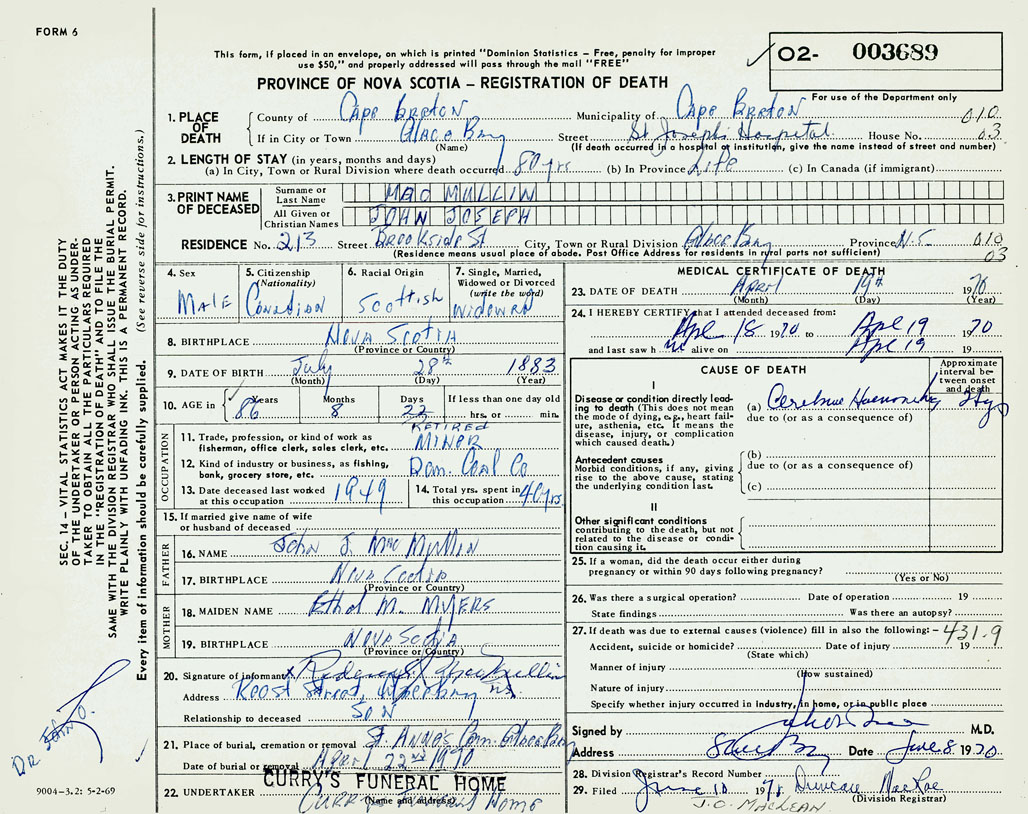 FORM 6
This form, if placed in an envelope, on which is printed "Dominion Statistics – Free, penalty for improper
use $50," and properly addressed will pass through the mail "FREE"
02- 003689
For use of the Department only
PROVINCE OF NOVA SCOTIA – REGISTRATION OF DEATH
1. PLACE OF DEATH
County of Cape Breton Municipality of Cape Breton 010
If in City or Town Glace Bay Street St Josephs Hospital House No. 03
(Name) (If death occurred in a hospital or institution, give the name instead of street and number)
2. LENGTH OF STAY (in years, months and days)
(a) In City, Town or Rural Division where death occurred 80 yrs (b) In Province Life (c) In Canada (if immigrant)
3. PRINT NAME OF DECEASED
Surname or Last Name MAC MULLIN
All Given or Christian Names JOHN JOSEPH
RESIDENCE No. 213 Street Brookside St City, Town or Rural Division Glace Bay Province N.S. 010
(Residence means usual place of abode. Post Office Address for residents in rural parts not sufficient) 03
4. Sex Male
5. Citizenship (Nationality) Canadian
6. Racial Origin Scottish
7. Single, Married, Widowed or Divorced (write the word) Widowed
8. BIRTHPLACE Nova Scotia
(Province or Country)
9. DATE OF BIRTH July 28th 1883
(Month) (Day) (Year)
10. AGE in Years 86 Months 8 Days 22 If less than one day old hrs. or min.
OCCUPATION
11. Trade, profession, or kind of work as fisherman, office clerk, sales clerk, etc. RETIRED MINER
12. Kind of industry or business, as fishing, bank, grocery store, etc. Dom. Coal Co
13. Date deceased last worked at this occupation 1949
14. Total yrs. spent in this occupation 40 yrs
15. If married give name of wife or husband of deceased
FATHER
16. NAME John J. Mac Mullin
17. BIRTHPLACE Nova Scotia
(Province or Country)
MOTHER
18. MAIDEN NAME Ethel M. MYERS
19. BIRTHPLACE Nova Scotia
(Province or Country)
20. Signature of informant x MacMullin
Address Street, Glace Bay N.S.
Relationship to deceased SON
21. Place of burial, cremation or removal St. ANNE'S Cem. Glace Bay
Date of burial or removal April 22nd 1970
CURRY'S FUNERAL HOME
22. UNDERTAKER Curry's Funeral Home
(Name and address)
MEDICAL CERTIFICATE OF DEATH
23. DATE OF DEATH April 19th 1970
(Month) (Day) (Year)
24. I HEREBY CERTIFY that I attended deceased from:
Apl 18 1970 to Apl 19 1970
and last saw h im alive on Apl 19 19
CAUSE OF DEATH
Approximate interval between onset and death
I
Disease or condition directly leading to death (This does not mean the mode of dying, e.g., heart failure, asthenia, etc. It means the disease, injury, or complication which caused death.)
(a) Cerebral Haemorrhage
due to (or as a consequence of)
Antecedent causes
Morbid conditions, if any, giving rise to the above cause, stating the underlying condition last.
(b)
due to (or as a consequence of)
(c)
II
Other significant conditions
contributing to the death, but not related to the disease or condition causing it.
25. If a woman, did the death occur either during
pregnancy or within 90 days following pregnancy?
(Yes or No)
26. Was there a surgical operation? Date of operation 19
State findings Was there an autopsy?
27. If death was due to external causes (violence) fill in also the following: – 431.9
Accident, suicide or homicide? Date of injury 19
(State which)
Manner of injury
(How sustained)
Nature of injury
Specify whether injury occurred in industry, in home, or in public place
Signed by M.D.
Address Glace Bay Date June 8 1970
28. Division Registrar's Record Number
29. Filed June 10 1970 Duncan MacRae
(Division Registrar)
J.O. MACLEAN
SEC. 14 – VITAL STATISTICS ACT MAKES IT THE DUTY
OF THE UNDERTAKER OR PERSON ACTING AS UNDER-
TAKER TO OBTAIN ALL THE PARTICULARS REQUIRED
IN THE "REGISTRATION OF DEATH" AND TO FILE THE
SAME WITH THE DIVISION REGISTRAR WHO SHALL ISSUE THE BURIAL PERMIT.
WRITE PLAINLY WITH UNFADING INK. THIS IS A PERMANENT RECORD.
Every item of information should be carefully supplied. (See reverse side for instructions.)
DR JOHN O.
9004–3.2: 5-2-69